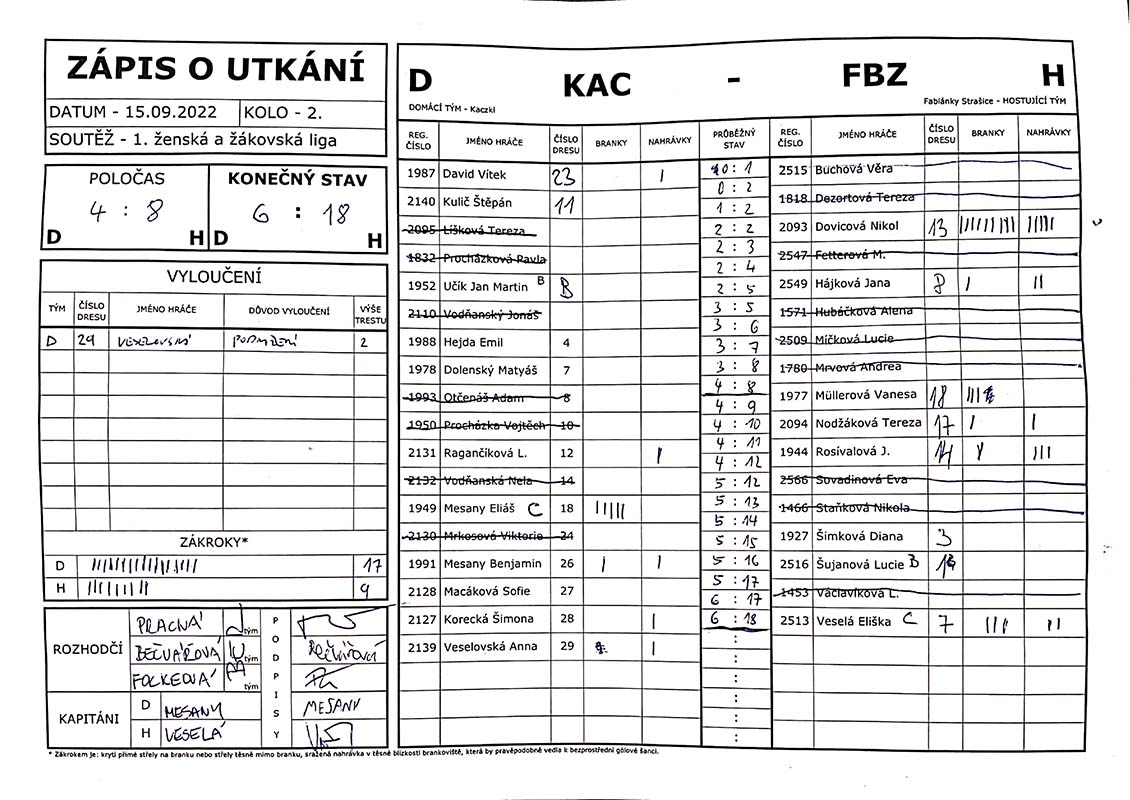 ZÁPIS O UTKÁNÍ
DATUM - 15.09.2022 KOLO - 2.
SOUTĚŽ - 1. ženská a žákovská liga
POLOČAS
4 : 8
D H
KONEČNÝ STAV
6 : 18
D H
VYLOUČENÍ
TÝM ČÍSLO DRESU JMÉNO HRÁČE DŮVOD VYLOUČENÍ VÝŠE TRESTU
D 29 VESELOVSKÁ PODRAŽENÍ 2
ZÁKROKY*
D 17
H 9
ROZHODČÍ
PRACNÁ tým
BEČVÁŘOVÁ tým
tým
PODPISY
KAPITÁNI
D MESANY MESANY
H VESELÁ
D KAC - FBZ H
DOMÁCÍ TÝM - Kaczki Fabiánky Strašice - HOSTUJÍCÍ TÝM
REG. ČÍSLO JMÉNO HRÁČE ČÍSLO DRESU BRANKY NAHRÁVKY PRŮBĚŽNÝ STAV REG. ČÍSLO JMÉNO HRÁČE ČÍSLO DRESU BRANKY NAHRÁVKY
1987 David Vítek 23 I
2140 Kulič Štěpán 11
2095 Líšková Tereza
1832 Procházková Pavla
1952 Učík Jan Martin B
2110 Vodňanský Jonáš
1988 Hejda Emil 4
1978 Dolenský Matyáš 7
1993 Otčenáš Adam 8
1950 Procházka Vojtěch 10
2131 Ragančíková L. 12 I
2132 Vodňanská Nela 14
1949 Mesany Eliáš C 18 IIIII
2130 Mrkosová Viktorie 24
1991 Mesany Benjamin 26 I I
2128 Macáková Sofie 27
2127 Korecká Šimona 28 I
2139 Veselovská Anna 29 I
0 : 1
0 : 2
1 : 2
2 : 2
2 : 3
2 : 4
2 : 5
3 : 5
3 : 6
3 : 7
3 : 8
4 : 8
4 : 9
4 : 10
4 : 11
4 : 12
5 : 12
5 : 13
5 : 14
5 : 15
5 : 16
5 : 17
6 : 17
6 : 18
2515 Buchová Věra
1818 Dezortová Tereza
2093 Dovicová Nikol 13
2547 Fetterová M.
2549 Hájková Jana 8 I II
1571 Hubáčková Alena
2509 Míčková Lucie
1780 Mrvová Andrea
1977 Müllerová Vanesa 18 III
2094 Nodžáková Tereza 17 I I
1944 Rosívalová J. 14 I III
2566 Sovadinová Eva
1466 Staňková Nikola
1927 Šimková Diana 3
2516 Šujanová Lucie B
1453 Václavíková L.
2513 Veselá Eliška C 7 III II
* Zákrokem je: krytí přímé střely na branku nebo střely těsně mimo branku, sražená nahrávka v těsné blízkosti brankoviště, která by pravěpodobně vedla k bezprostřední gólové šanci.